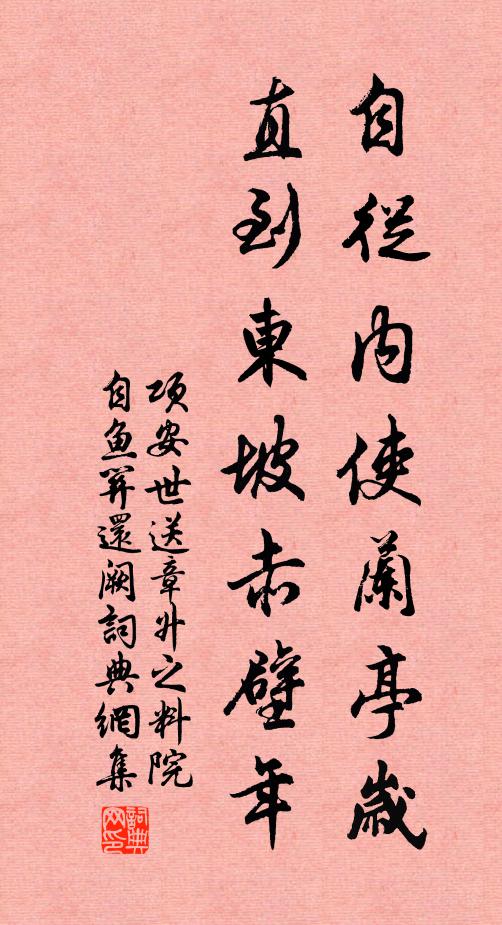 自從內使蘭亭歲
直到東坡赤壁年
項安世送章升之料院
自魚關還闕詞典網集
詞典
网印